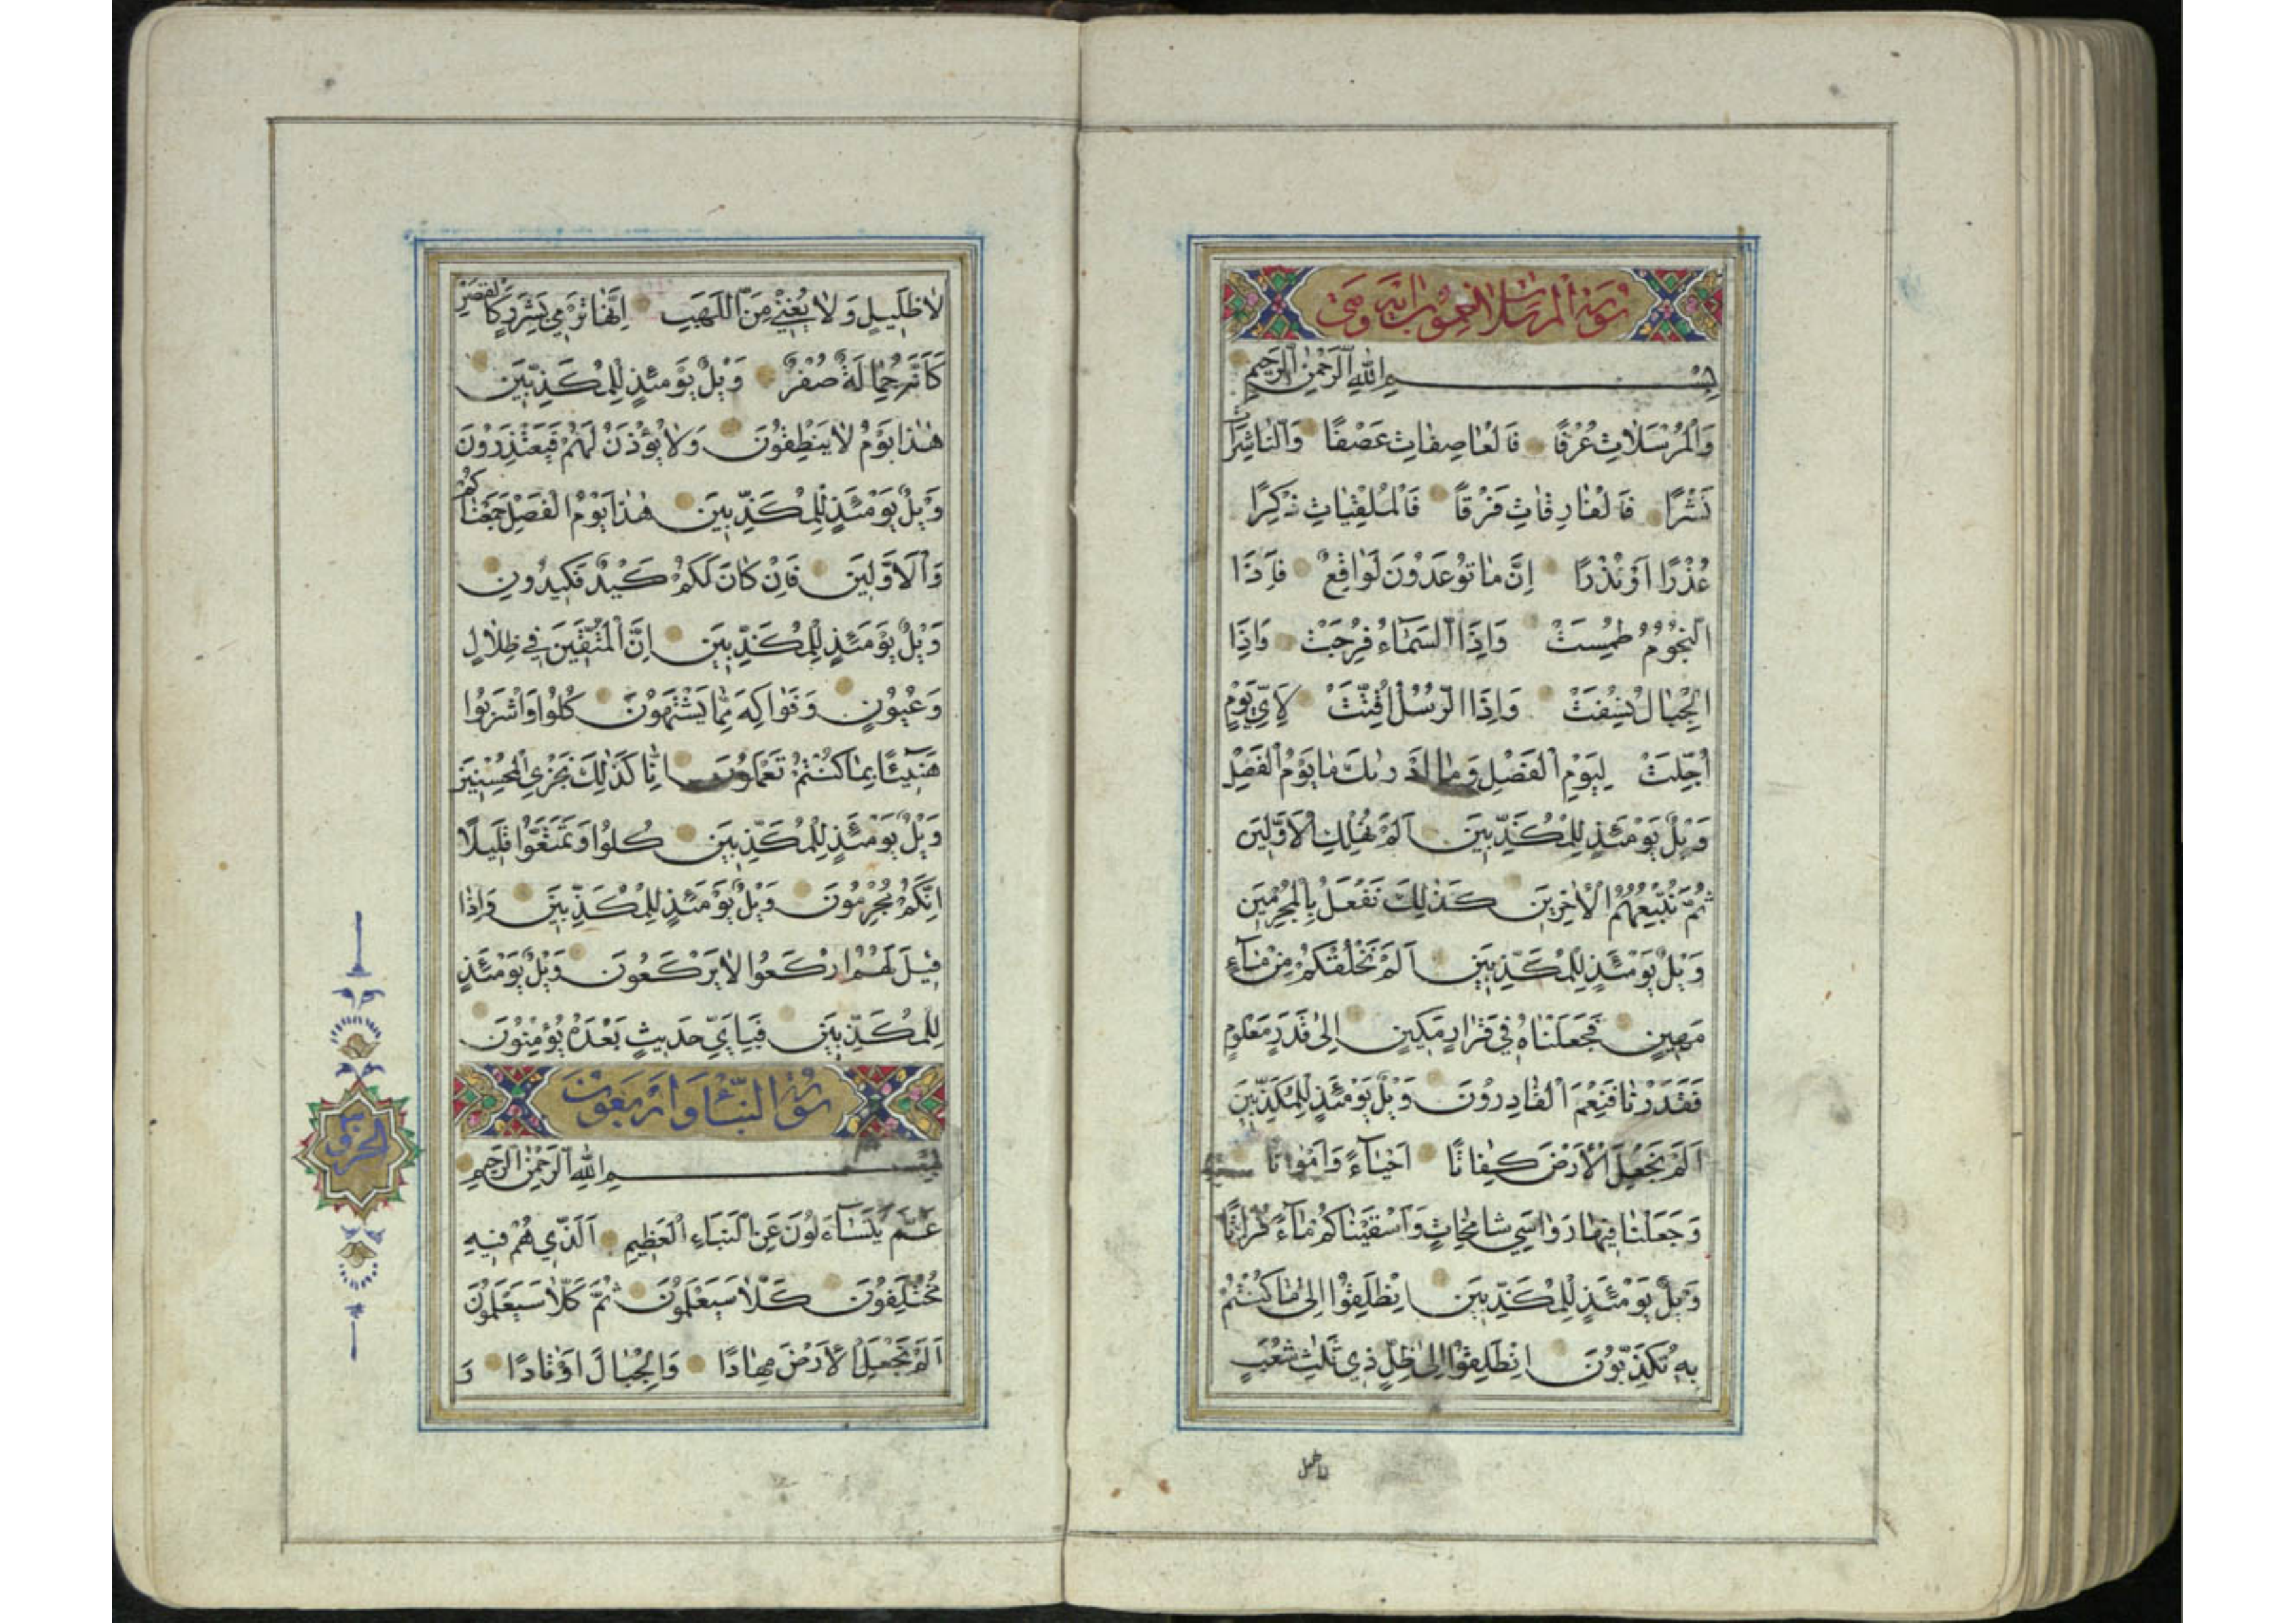 سورة المرسلات خمسون آية وهي
بِسْمِ اللهِ الرَّحْمٰنِ الرَّحِيمِ
وَالْمُرْسَلَاتِ عُرْفًا فَالْعَاصِفَاتِ عَصْفًا وَالنَّاشِرَاتِ
نَشْرًا فَالْفَارِقَاتِ فَرْقًا فَالْمُلْقِيَاتِ ذِكْرًا
عُذْرًا أَوْ نُذْرًا إِنَّ مَا تُوعَدُونَ لَوَاقِعٌ فَإِذَا
النُّجُومُ طُمِسَتْ وَإِذَا السَّمَاءُ فُرِجَتْ وَإِذَا
الْجِبَالُ نُسِفَتْ وَإِذَا الرُّسُلُ أُقِّتَتْ لِأَيِّ يَوْمٍ
أُجِّلَتْ لِيَوْمِ الْفَصْلِ وَمَا أَدْرٰىكَ مَا يَوْمُ الْفَصْلِ
وَيْلٌ يَوْمَئِذٍ لِلْمُكَذِّبِينَ أَلَمْ نُهْلِكِ الْأَوَّلِينَ
ثُمَّ نُتْبِعُهُمُ الْاٰخِرِينَ كَذٰلِكَ نَفْعَلُ بِالْمُجْرِمِينَ
وَيْلٌ يَوْمَئِذٍ لِلْمُكَذِّبِينَ أَلَمْ نَخْلُقْكُمْ مِنْ مَاءٍ
مَهِينٍ فَجَعَلْنَاهُ فِي قَرَارٍ مَكِينٍ إِلٰى قَدَرٍ مَعْلُومٍ
فَقَدَرْنَا فَنِعْمَ الْقَادِرُونَ وَيْلٌ يَوْمَئِذٍ لِلْمُكَذِّبِينَ
أَلَمْ نَجْعَلِ الْأَرْضَ كِفَاتًا أَحْيَاءً وَأَمْوَاتًا
وَجَعَلْنَا فِيهَا رَوَاسِيَ شَامِخَاتٍ وَأَسْقَيْنَاكُمْ مَاءً فُرَاتًا
وَيْلٌ يَوْمَئِذٍ لِلْمُكَذِّبِينَ انْطَلِقُوا إِلٰى مَا كُنْتُمْ
بِهِ تُكَذِّبُونَ انْطَلِقُوا إِلٰى ظِلٍّ ذِي ثَلٰثِ شُعَبٍ
لا ظليل
لَا ظَلِيلٍ وَلَا يُغْنِي مِنَ اللَّهَبِ إِنَّهَا تَرْمِي بِشَرَرٍ كَالْقَصْرِ
كَأَنَّهُ جِمَالَةٌ صُفْرٌ وَيْلٌ يَوْمَئِذٍ لِلْمُكَذِّبِينَ
هٰذَا يَوْمُ لَا يَنْطِقُونَ وَلَا يُؤْذَنُ لَهُمْ فَيَعْتَذِرُونَ
وَيْلٌ يَوْمَئِذٍ لِلْمُكَذِّبِينَ هٰذَا يَوْمُ الْفَصْلِ جَمَعْنَاكُمْ
وَالْأَوَّلِينَ فَإِنْ كَانَ لَكُمْ كَيْدٌ فَكِيدُونِ
وَيْلٌ يَوْمَئِذٍ لِلْمُكَذِّبِينَ إِنَّ الْمُتَّقِينَ فِي ظِلَالٍ
وَعُيُونٍ وَفَوَاكِهَ مِمَّا يَشْتَهُونَ كُلُوا وَاشْرَبُوا
هَنِيئًا بِمَا كُنْتُمْ تَعْمَلُونَ إِنَّا كَذٰلِكَ نَجْزِي الْمُحْسِنِينَ
وَيْلٌ يَوْمَئِذٍ لِلْمُكَذِّبِينَ كُلُوا وَتَمَتَّعُوا قَلِيلًا
إِنَّكُمْ مُجْرِمُونَ وَيْلٌ يَوْمَئِذٍ لِلْمُكَذِّبِينَ وَإِذَا
قِيلَ لَهُمُ ارْكَعُوا لَا يَرْكَعُونَ وَيْلٌ يَوْمَئِذٍ
لِلْمُكَذِّبِينَ فَبِأَيِّ حَدِيثٍ بَعْدَهُ يُؤْمِنُونَ
سورة النبأ وأربعون
بِسْمِ اللهِ الرَّحْمٰنِ الرَّحِيمِ
عَمَّ يَتَسَاءَلُونَ عَنِ النَّبَاءِ الْعَظِيمِ الَّذِي هُمْ فِيهِ
مُخْتَلِفُونَ كَلَّا سَيَعْلَمُونَ ثُمَّ كَلَّا سَيَعْلَمُونَ
أَلَمْ نَجْعَلِ الْأَرْضَ مِهَادًا وَالْجِبَالَ أَوْتَادًا وَ
الجزو